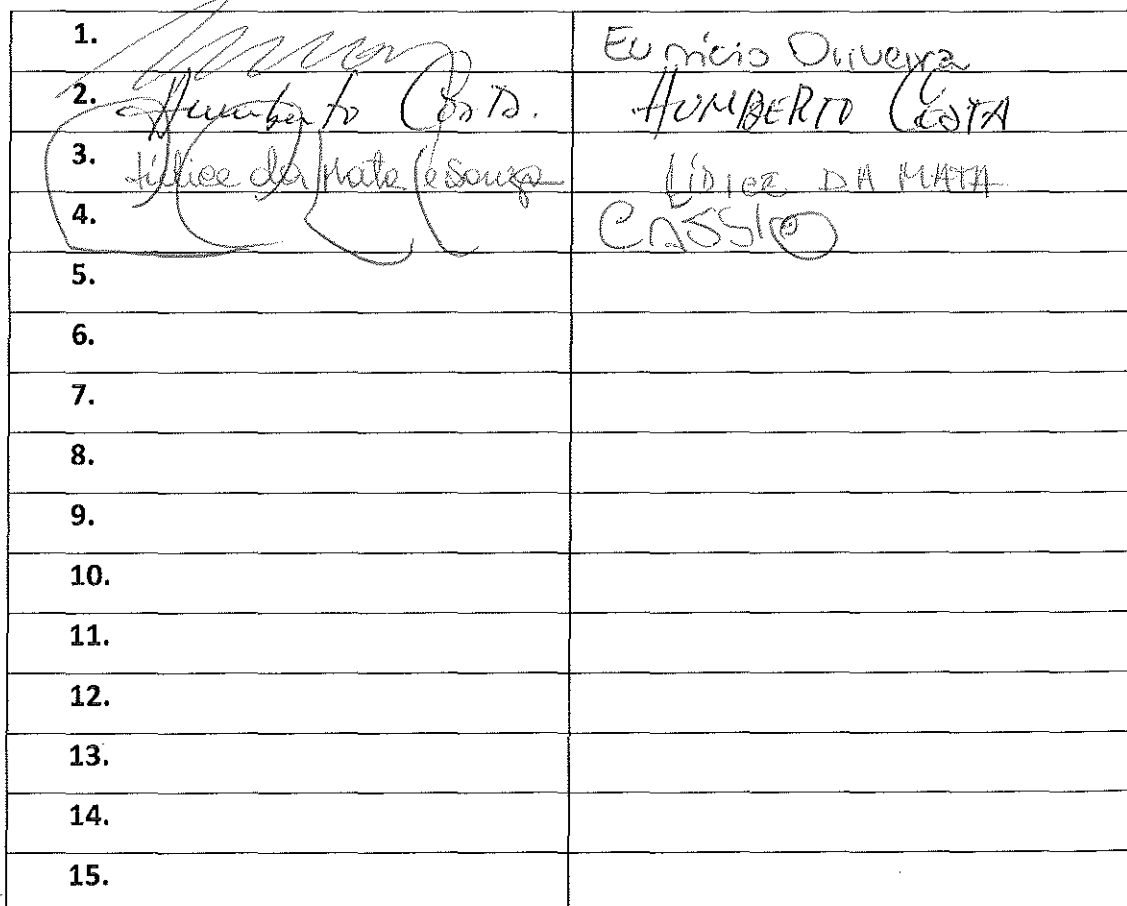 1. Eunício Oliveira
2. Humberto Costa. HUMBERTO COSTA
3. Lídice da Mata e Souza LÍDICE DA MATA
4. CÁSSIO
5.
6.
7.
8.
9.
10.
11.
12.
13.
14.
15.